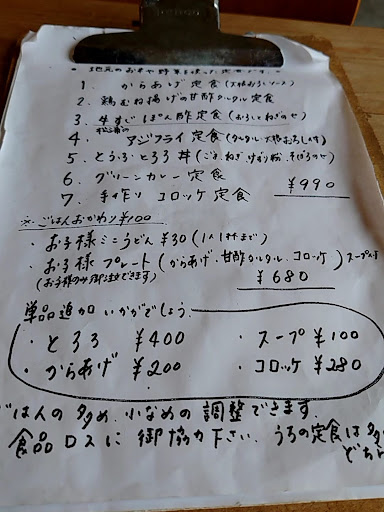 地元のお米や野菜を使った定食です。
1. からあげ定食 (大根おろしソース)
2. 鶏むね揚げの甘酢タルタル定食
3. 牛すじぽん酢定食 (おろしとねぎのせ)
4. アジフライ定食 (タルタル・大根おろし付き)
5. とうふ・とろろ丼 (ごま、ねぎ、けずり粉、そぼろのせ)
6. グリーンカレー定食
7. 手作りコロッケ定食 ¥990
※ごはんおかわり¥100
・お子様ミニうどん ¥30 (1人1杯まで)
・お子様プレート (からあげ、甘酢タルタル、コロッケ) スープ付
(お子様のみ御注文できます) ¥680
単品追加いかがでしょう
・とろろ ¥400 ・スープ ¥100
・からあげ ¥200 ・コロッケ ¥280
ごはんの多め、小なめの調整できます。
食品ロスに御協力下さい。うちの定食は